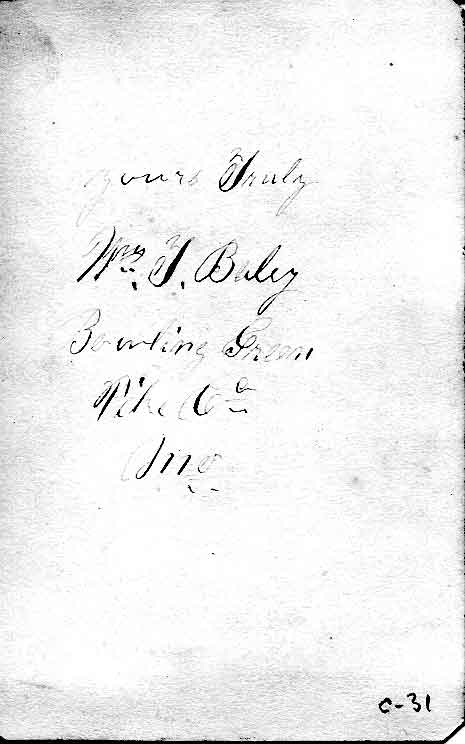 yours Truly
Wm. T. Baley
Bowling Green
Pike Co
Mo
C-31